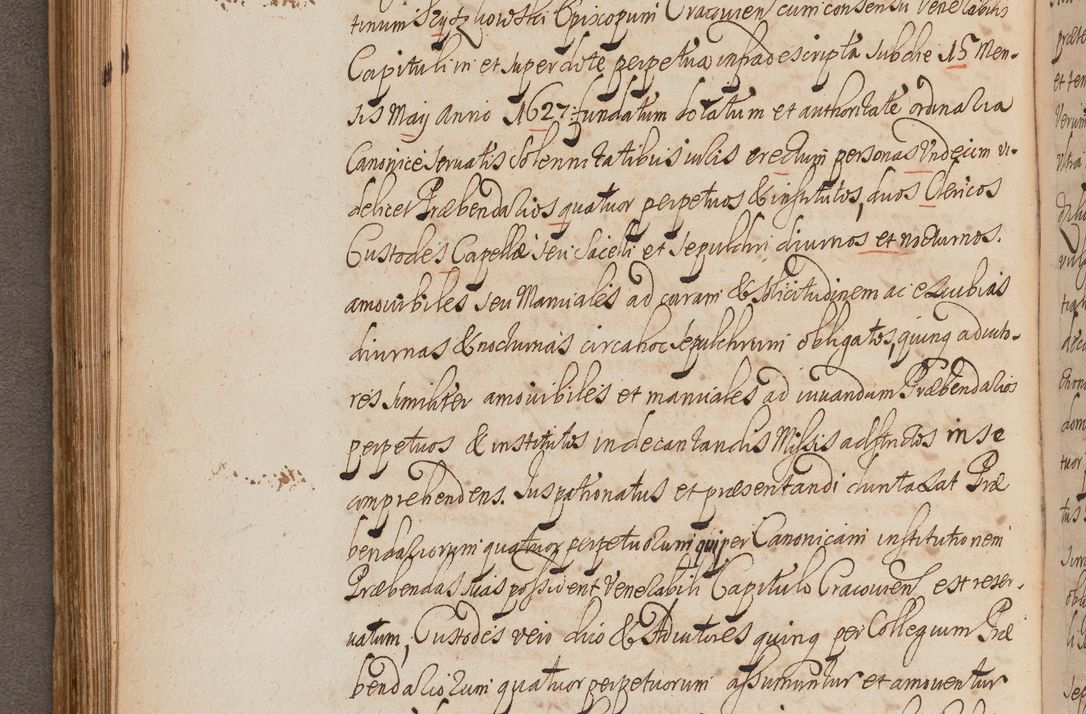 tinum Szyszkowski Episcopum Cracovien cum consensu Venerabilis
Capituli in et super dote perpetua infra descripta sub die 15 Men-
sis Maij Anno 1627: fundatum dotatum et authoritate ordinaria
Canonice servatis solennitatibus iuris erectum personas Vndecim vi-
delicet Præbendarios quatuor perpetuos & institutos, duos Clericos
Custodes Capellæ seu Sacelli et sepulchri diurnos et nocturnos.
amovibiles seu Manuales ad curam & solicitudinem ac excubias
diurnas & nocturnas circa hoc sepulchrum obligatos, quinq adiuto-
res similiter amovibiles et manuales ad iuvandum Præbendarios
perpetuos & institutos in decantandis Missis adstrictos in se
comprehendens. Ius patronatus et præsentandi duntaxat Præ
bendariorum quatuor perpetuorum qui per Canonicam institutionem
Præbendas suas possident Venerabili Capitulo Cracovien est reser-
vatum, Custodes vero duo & Adiutores quinq per Collegium Præ
bendariorum quatuor perpetuorum assumuntur et amoventur